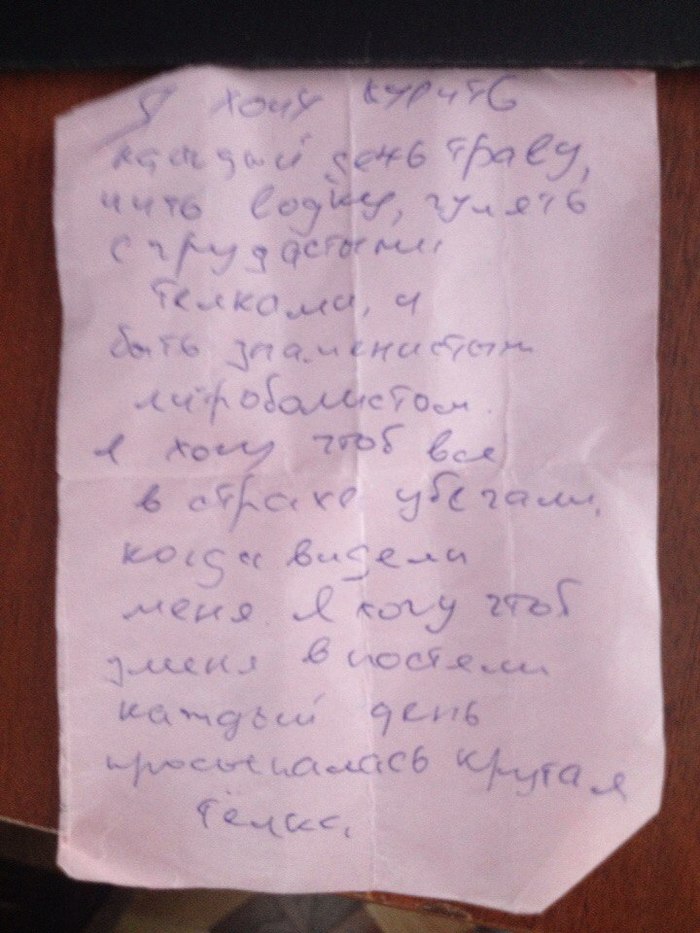 Я хочу курить
каждый день траву,
пить водку, гулять
с грудастыми
телками, и
быть знаменистым
литроболистом.
Я хочу чтоб все
в страхе убегали,
когда видели
меня. Я хочу чтоб
уменя в постели
каждый день
просыпалась крутая
тёлка.